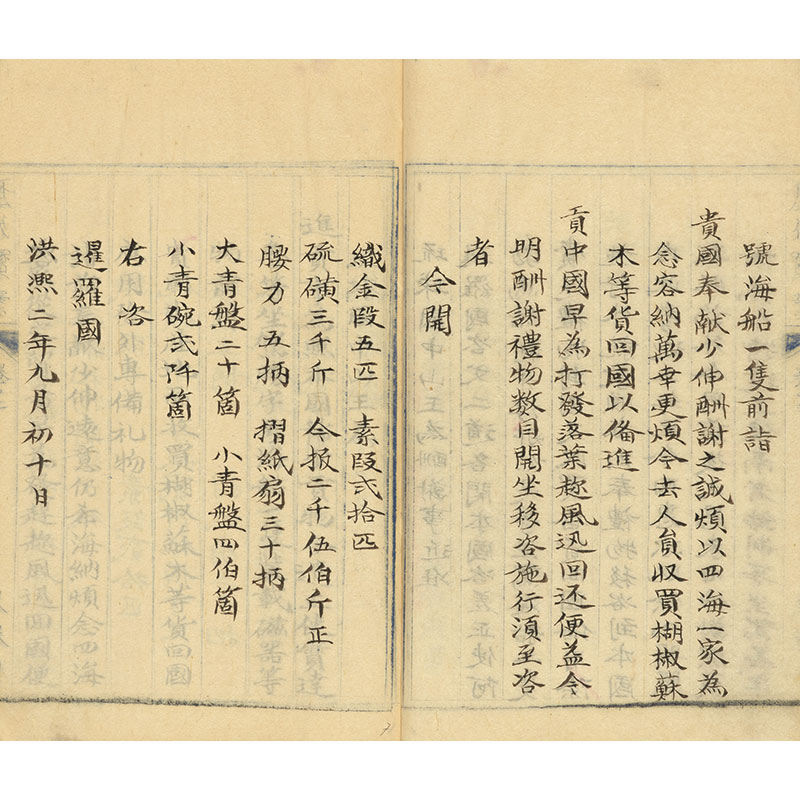 號海船一隻前詣
貴國奉献少伸酬謝之誠煩以四海一家為
念容納萬幸更煩令去人員収買楜椒蘇
木等貨回國以俻進
貢中國早為打發落葉趂風迅回还便益今
明酬謝禮物数目開坐移咨施行湏至咨
者
今開
織金段五匹　素段弐拾匹
硫磺三千斤　今报二千伍伯斤正
腰刀五柄　摺紙扇三十柄
大青盤二十箇　小青盤四伯箇
小青碗弐阡箇
右咨
暹羅國
洪熙二年九月初十日